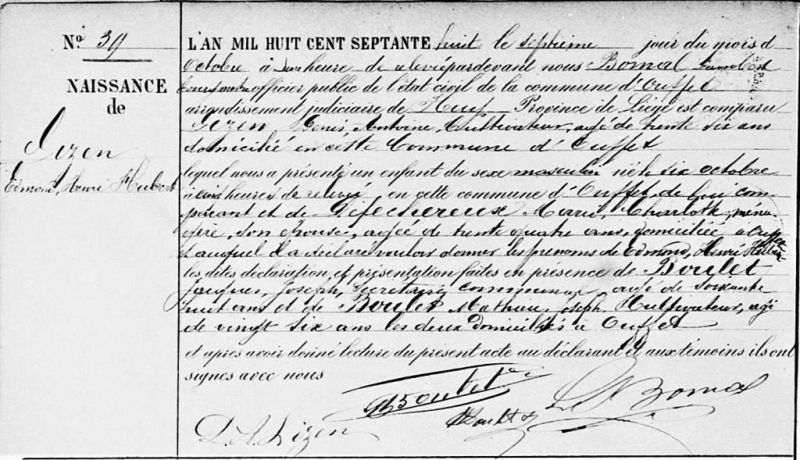 N° 39
NAISSANCE
de
Lizen
Edmond, Henri Hubert
L'AN MIL HUIT CENT SEPTANTE huit le septième jour du mois d
Octobre à une heure de relevée pardevant nous Bomal
officier public de l'état civil de la commune d'Ouffet
arrondissement judiciaire de Huy Province de Liège est comparu
Lizen Denis, Antoine, Cultivateur, agé de trente six ans
domicilié en cette Commune d'Ouffet
lequel nous a présenté un enfant du sexe masculin né h six octobre
à cinq heures de relevée, en cette commune d'Ouffet, de lui com
parant et de Defechereux Marie, Charlotte, ména
gère, son épouse, agée de trente quatre ans, domiciliée à Ouffet
et auquel il a déclaré vouloir donner les prénoms de Edmond, Henri Hubert
les dites déclaration et présentation faites en présence de Boulet
Jacques, Joseph, Secrétaire communal, agé de soixante
huit ans et de Boulet Mathieu, Joseph, Cultivateur, agé
de vingt six ans les deux domiciliés à Ouffet
et après avoir donné lecture du présent acte au déclarant et aux témoins ils ont
signés avec nous
Boulet
D. A. Lizen
Boulet
Bomal